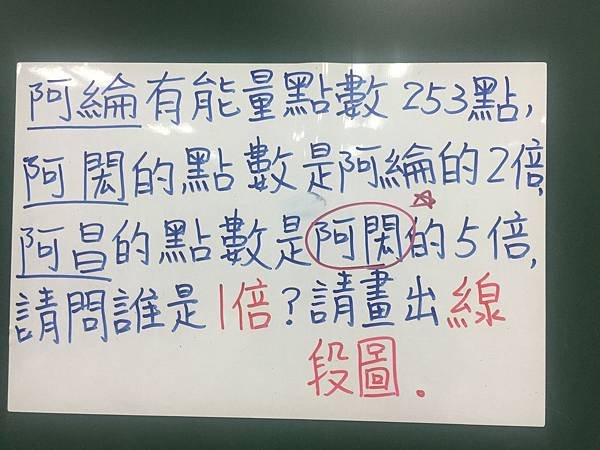 阿綸有能量點數253點,
阿閎的點數是阿綸的2倍,
阿昌的點數是阿閎的5倍,
請問誰是1倍?請畫出線
段圖.